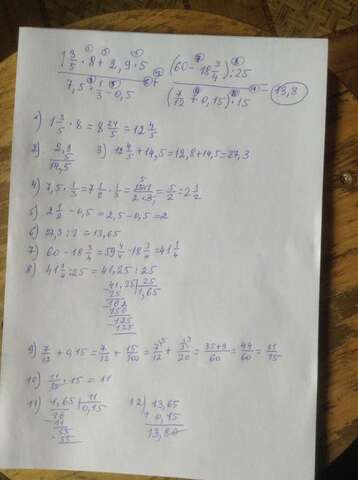 1 3/5 · 8 + 2,9 · 5 / 7,5 · 1/3 - 0,5 + (60 - 18 3/4) : 25 / (7/12 + 0,15) · 15 = 13,8
1) 1 3/5 · 8 = 8 24/5 = 12 4/5
2) 2,9
5
14,5
3) 12 4/5 + 14,5 = 12,8 + 14,5 = 27,3
4) 7,5 · 1/3 = 7 1/2 · 1/3 = 15·1/2·3 = 5/2 = 2 1/2
5) 2 1/2 - 0,5 = 2,5 - 0,5 = 2
6) 27,3 : 2 = 13,65
7) 60 - 18 3/4 = 59 4/4 - 18 3/4 = 41 1/4
8) 41 1/4 : 25 = 41,25 : 25
41,25 | 25
25 | 1,65
162
150
125
125
9) 7/12 + 0,15 = 7/12 + 15/100 = 7/12 + 3/20 = 35+9/60 = 44/60 = 11/15
10) 11/15 · 15 = 11
11) 1,65 | 11
0,15
11
55
55
12) 13,65
+ 0,15
13,80